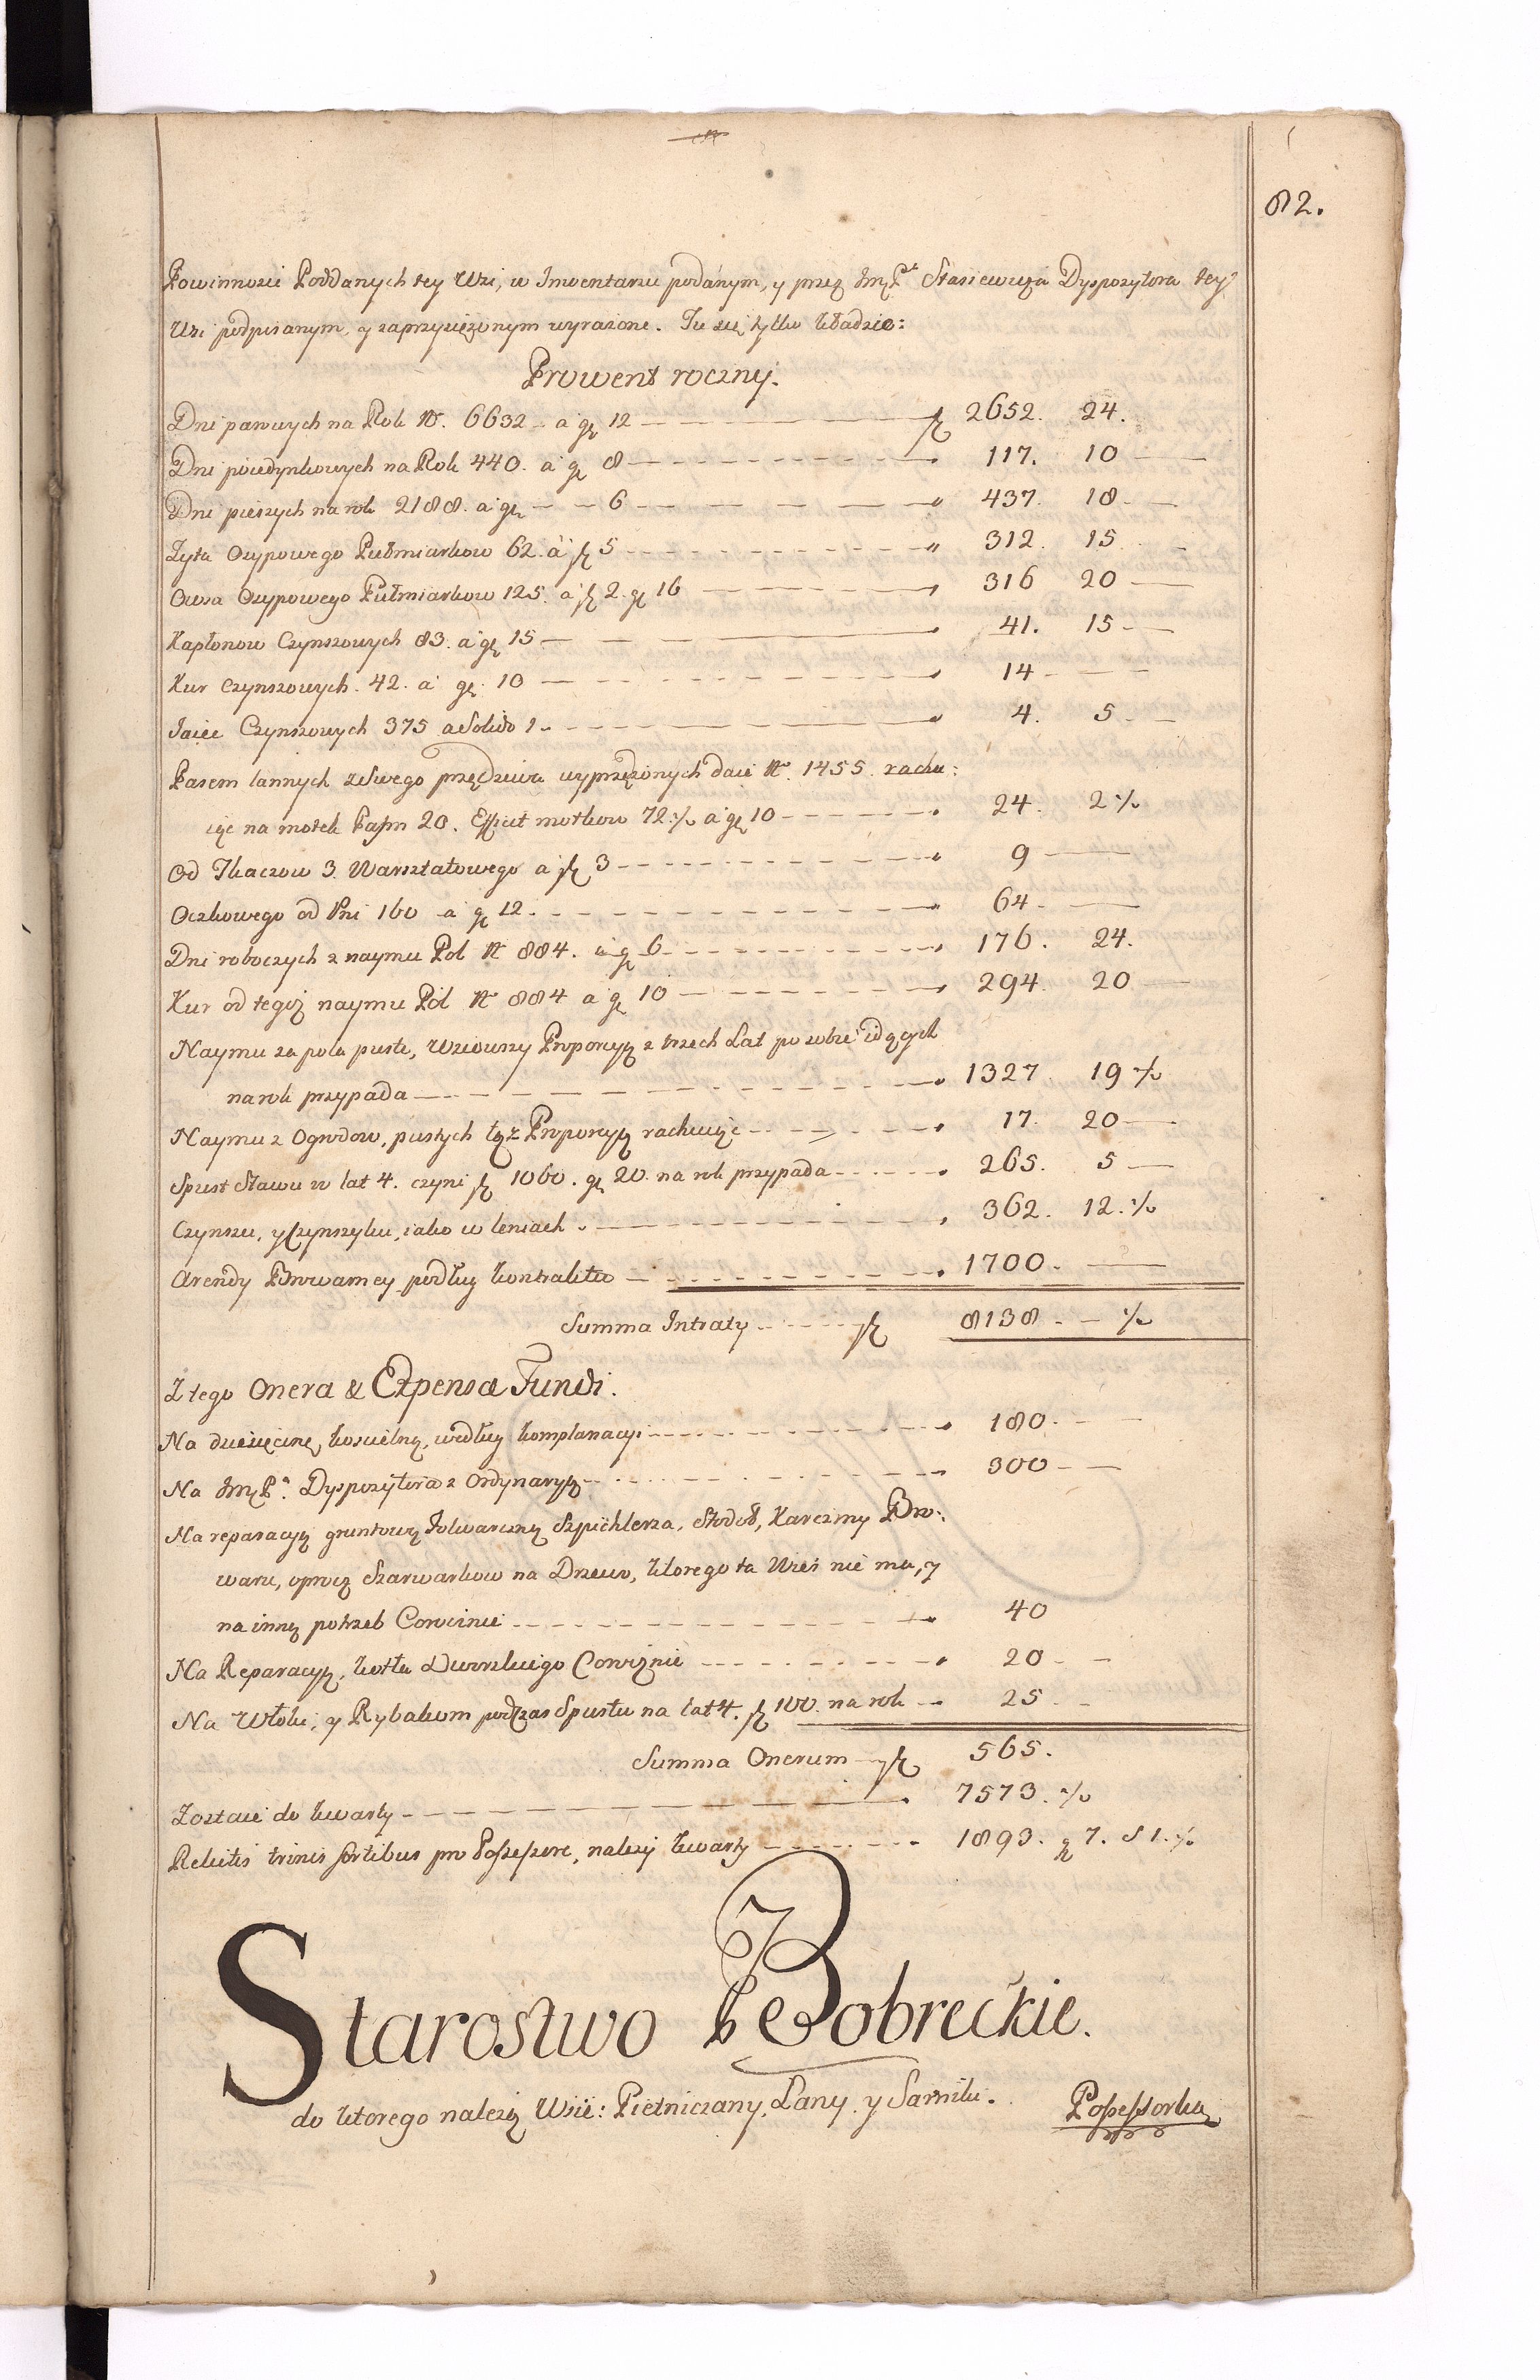 82.
Powinnosci Poddanych tey Wsi, w Inwentarzu podanym, y przez JmęP. Stasiewicza Dyspozytora tey?
Wsi podpisanym, y zaprzysiężonym wyrażone. Tu się tylko kładzie:
Prowent roczny.
Dni parowych na Rok No. 6632 - a gr 12 — fl 2652. 24.
Dni poiedynkowych na Rok 440. a gr 8 — 117. 10 —
Dni pieszych na rok 2188. a gr — 6 — 437. 18 —
Żyta Osypowego Pułmiarkow 62. a fl 5 — 312. 15 —
Owsa Osypowego Pułmiarkow 125. a fl 2. gr 16 — 316 20 —
Kapłonow Czynszowych 83. a gr 15 — 41. 15 —
Kur Czynszowych. 42. a gr. 10 — 14 —
Jaiec Czynszowych 375 a Solido 1 — 4. 5 —
Pasem lannych zeswego przędziwa wyprzężonych daie No. 1455. rachu:
iąc na motek Pasm 20. Efficit motkow 72 ·/. a gr 10 — 24. 2 ·/.
Od Tkaczow 3. Warsztatowego a fl 3 — 9 —
Oczkowego od Pni 160 a gr 12. — 64 —
Dni roboczych z naymu Pol No 884. a gr 6 — 176. 24.
Kur od tegoż naymu Pól No 884 a gr 10 — 294. 20 —
Naymu za pola puste, wziowszy Proporcyą z trzech Lat po sobie idących
na rok przypada — 1327. 19 ·/.
Naymu z Ogrodow, pustych tąż Proporcyą rachuiąc — 17. 20 —
Spust Stawu w lat 4. czyni fl 1060. gr 20. na rok przypada — 265. 5 —
Czynszu, y Czynszyku, iako w leniach. — 362. 12. ·/.
Arendy Browarney podług kontraktu — 1700. —
Summa Intraty — fl 8138 - - ·/.
Z tego Onera & Expensæ Fundi.
Na dziesięcinę kościelną, według komplanacyi — 180. —
Na JmęPa. Dyspozytora z Ordynaryą — 300 —
Na reparacyą gruntową folwarczną Szpichlerza, Stodoł, Karczmy Bro:
waru, oprocz Szarwarkow na Drzewo, ktorego ta Wieś nie ma, y
na inną potrzeb Corocznie — 40
Na Reparacyą, kotła Dworskiego Corocznie — 20 - -
Na Włoki, y Rybakom podczas Spustu na lat 4. fl 100. na rok — 25 - -
Summa Onerum — fl 565.
Zostaie do kwarty — 7573. ·/.
Relictis trinis sortibus pro Possessore, należy kwarty — 1893. gr 7. S 1. ·/.
Starostwo Bobreckie.
do ktorego należą Wsie: Pietniczany, Lany, y Sarniki. Possessorką